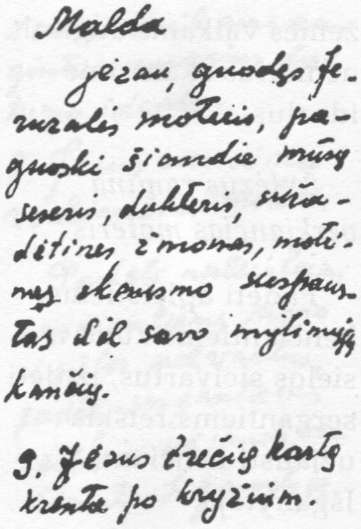 Malda
Jėzau, guodęs Je-
ruzalės moteris, pa-
guoski šiandie mūsų
seseris, dukteris, suža-
dėtines, žmonas, moti-
nas skausmo suspaus-
tas dėl savo mylimųjų
kančių.
9. Jėzus trečią kartą
krenta po kryžium.